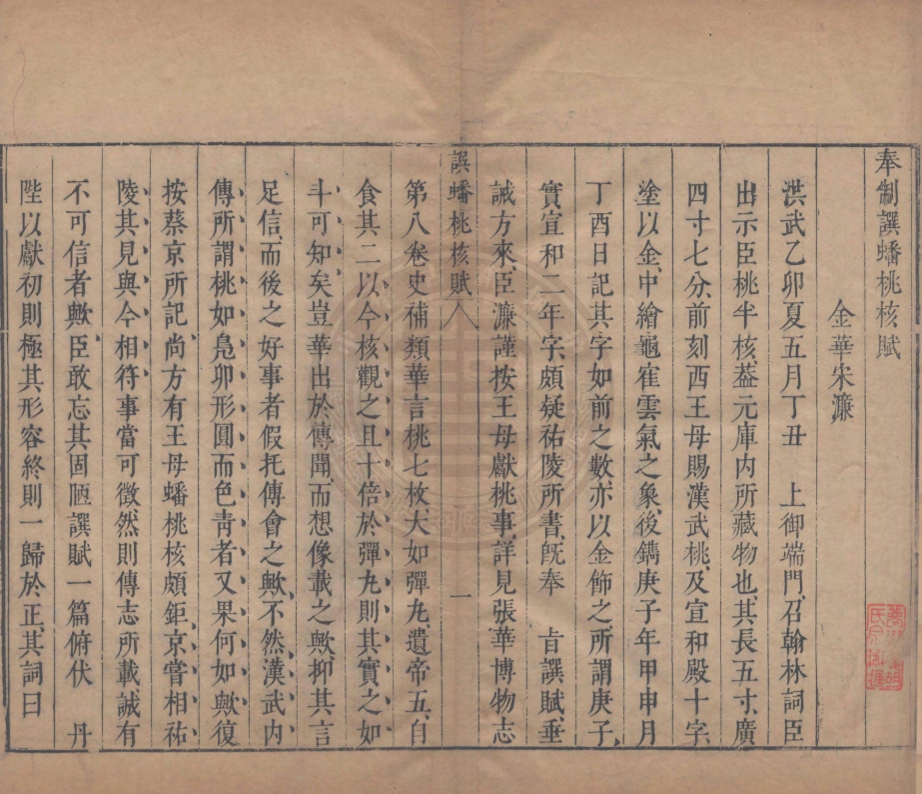 奉制譔蟠桃核賦
金華宋濂
洪武乙卯夏五月丁丑　上御端門、召翰林詞臣
出示臣桃半核、葢元庫内所藏物也、其長五寸、廣
四寸七分、前刻西王母賜漢武桃、及宣和殿十字、
塗以金、中繪龜寉雲氣之象、後鐫庚子年甲申月
丁酉日記、其字如前之數、亦以金飾之、所謂庚子、
實宣和二年字、頗疑祐陵所書、旣奉　旨譔賦、垂
誠方來、臣濂謹按王母獻桃事、詳見張華博物志
譔蟠桃核賦　一
第八卷史補類、華言桃七枚、大如彈丸、遺帝五、自
食其二、以今核觀之、且十倍於彈丸、則其實之如
斗可知矣、豈華出於傳聞、而想像載之歟、抑其言
足信、而後之好事者假托傳會之歟、不然、漢武内
傳所謂桃如鳧卵形圓而色靑者、又果何如歟、復
按蔡京所記、尚方有王母蟠桃核頗鉅、京嘗相祐
陵、其見與今相符、事當可徵、然則傳志所載、誠有
不可信者歟、臣敢忘其固陋、譔賦一篇、俯伏　丹
陛以獻、初則極其形容、終則一歸於正、其詞曰